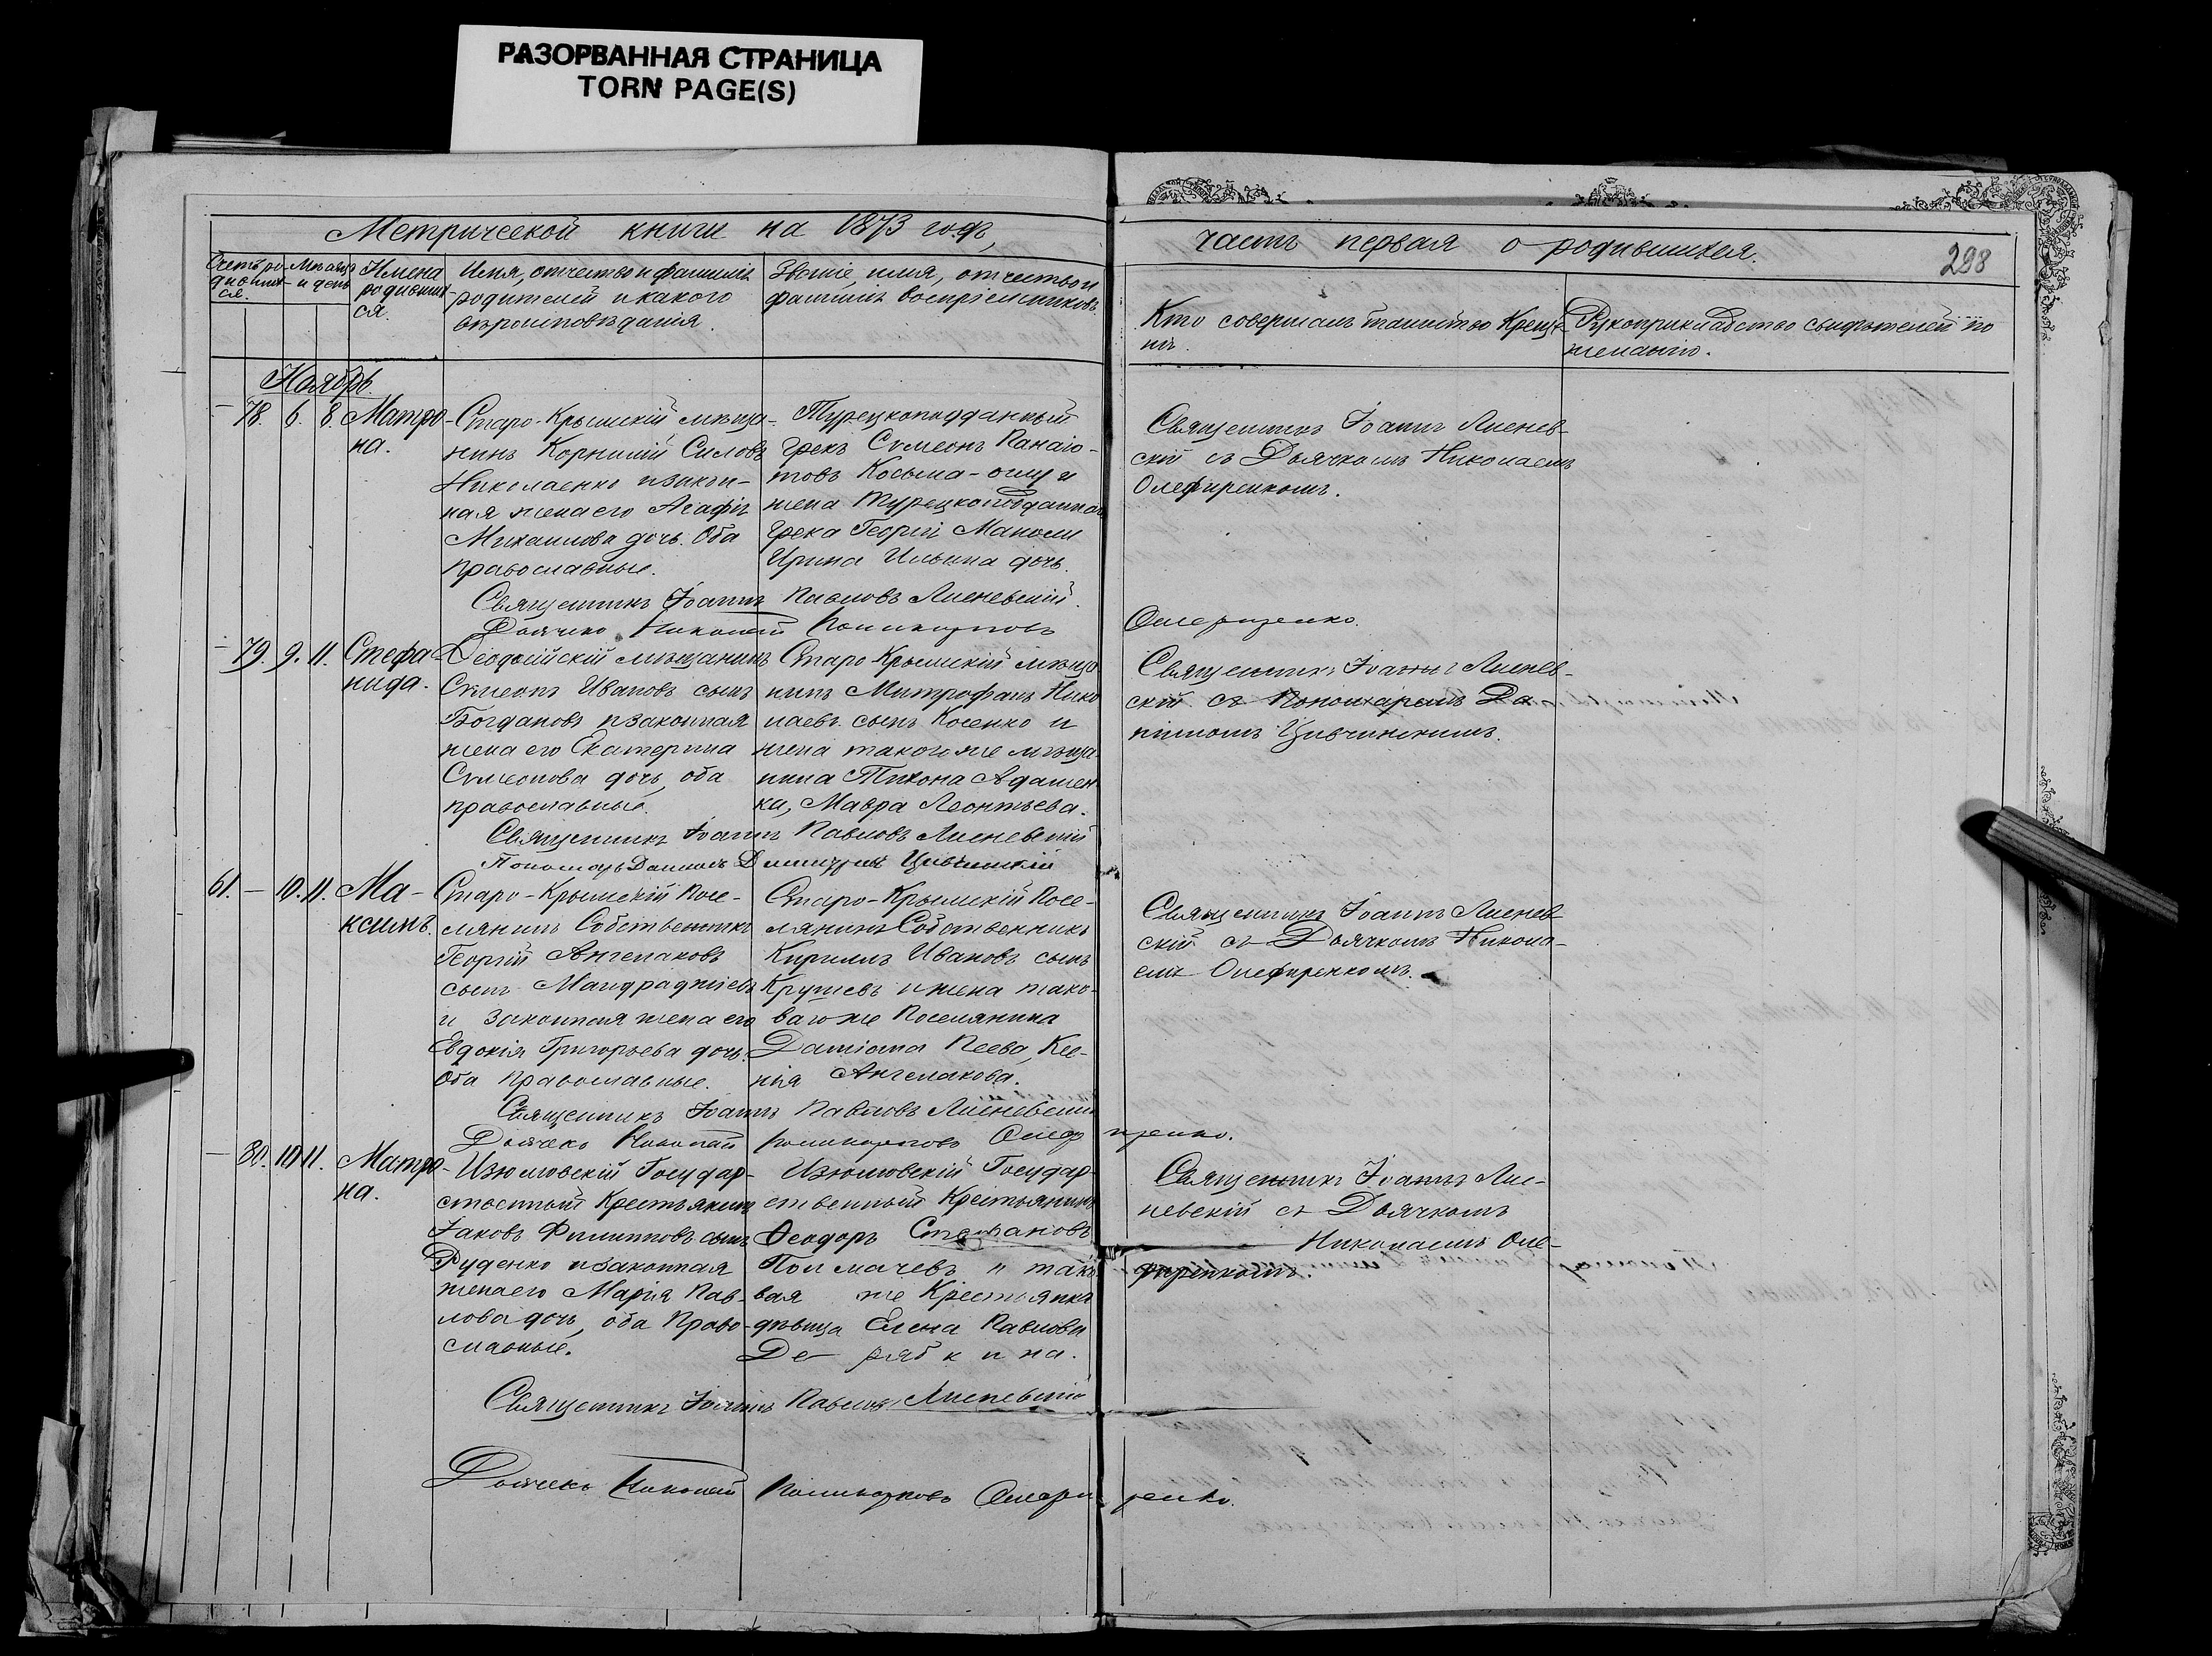 РАЗОРВАННАЯ СТРАНИЦА
TORN PAGE(S)
Метрической книги на 1873 годъ,
часть первая о родившихся.
298
Счетъ ро-
дивших-
ся.
Мѣсяцъ
и день
Имена
родивших-
ся.
Имя, отчество и фамилія
родителей и какого
вѣроисповѣданія.
Званіе, имя, отчество и
фамилія воспріемниковъ.
Кто совершалъ таинство Креще-
нія.
Рукоприкладство свидѣтелей по
желанію.
Ноябрь.
78. 6. 8. Матро-
на.
Старо-Крымскій мѣща-
нинъ Корнилій Силовъ
Николаенко и закон-
ная жена его Агафія
Михаилова дочь. Оба
православные.
Турецкоподданный
грекъ Сѵмеонъ Панаіо-
товъ Косьма-оглу и
жена Турецкоподданнаго
грека Георгія Маноли
Ирина Ильина дочь.
Священникъ Іоаннъ Лисенев-
скій съ Дьячкомъ Николаемъ
Олефиренкомъ.
Священникъ Іоаннъ Павловъ Лисеневскій.
Дьячекъ Николай Поликарповъ Олефиренко.
79. 9. 11. Стефа-
нида.
Ѳеодосійскій мѣщанинъ
Сѵмеонъ Ивановъ сынъ
Богдановъ и законная
жена его Екатерина
Сѵмеонова дочь, оба
православные.
Старо-Крымскій мѣща
нинъ Митрофанъ Нико
лаевъ сынъ Косенко и
жена такого же мѣща-
нина Тихона Адамен-
ка, Мавра Леонтьева.
Священникъ Іоаннъ Лисенев-
скій съ Пономаремъ Да-
ніиломъ Цивчинскимъ.
Священникъ Іоаннъ Павловъ Лисеневскій
Пономарь Даніилъ Димитріевъ Цивчинскій
61. 10. 11. Ма-
ксимъ.
Старо-Крымскій Посе-
лянинъ Собственникъ
Георгій Ангелаковъ
сынъ Мандраджіевъ
и законная жена его
Евдокія Григорьева дочь.
Оба православные.
Старо-Крымскій Посе-
лянинъ Собственникъ
Кириллъ Ивановъ сынъ
Крушевъ и жена тако-
ваго же Поселянина
Даміана Пеева, Ксе-
нія Ангелакова.
Священникъ Іоаннъ Лисенев-
скій съ Дьячкомъ Никола-
емъ Олефиренкомъ.
Священникъ Іоаннъ Павловъ Лисеневскій
Дьячекъ Николай Поликарповъ Олефиренко.
80. 10 11. Матро-
на.
Изюмовскій Государ-
ственный Крестьянинъ
Іаковъ Филипповъ сынъ
Руденко и законная
жена его Марія Пав-
лова дочь, оба Право-
славные.
Изюмовскій Государ-
ственный Крестьянинъ
Ѳеодоръ Стефановъ
Толмачевъ и тако
вая же Крестьянка
дѣвица Елена Павлова
Де рябкина.
Священникъ Іоаннъ Лисе-
невскій съ Дьячкомъ
Николаемъ Оле-
фиренкомъ.
Священникъ Іоаннъ Павловъ Лисеневскій
Дьячекъ Николай Поликарповъ Олефиренко.